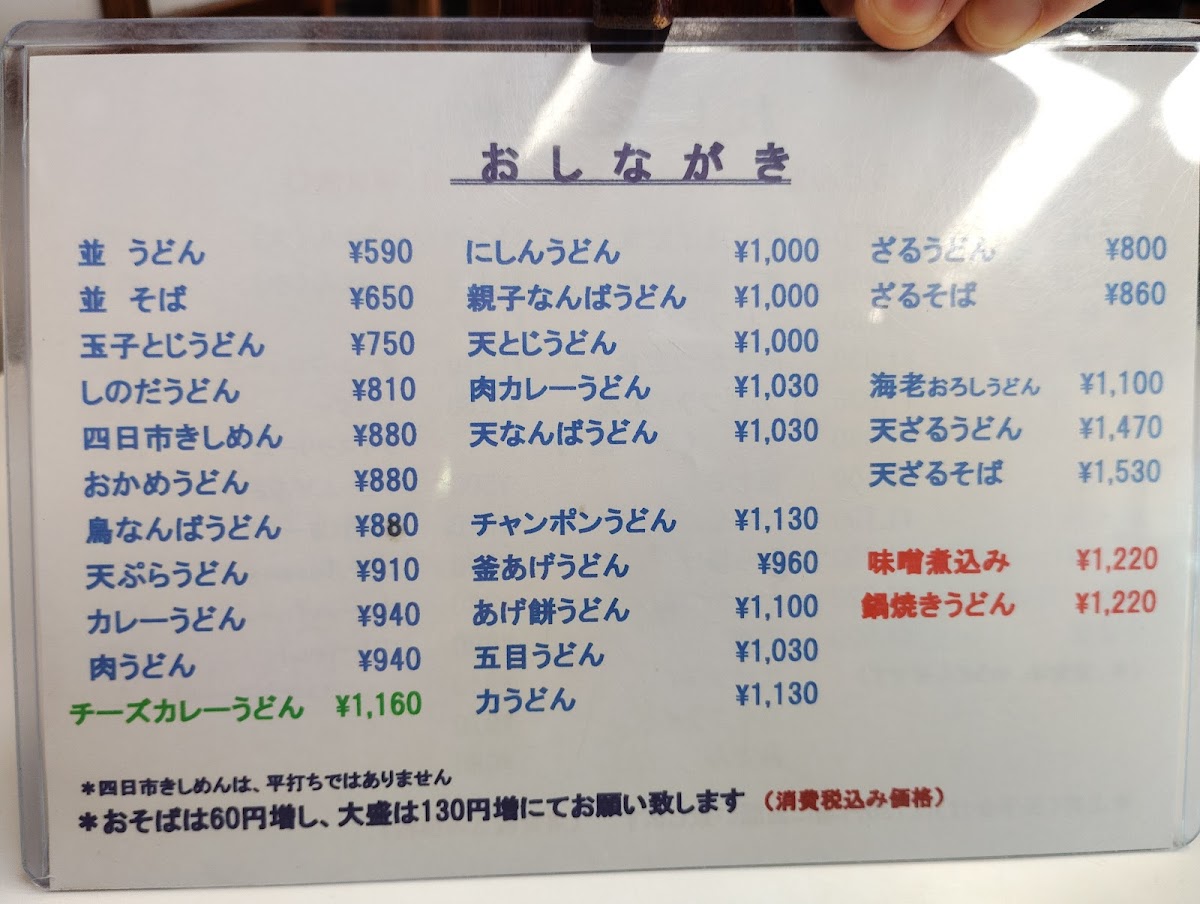 おしながき
並 うどん ¥590
並 そば ¥650
玉子とじうどん ¥750
しのだうどん ¥810
四日市きしめん ¥880
おかめうどん ¥880
鳥なんばうどん ¥880
天ぷらうどん ¥910
カレーうどん ¥940
肉うどん ¥940
チーズカレーうどん ¥1,160
にしんうどん ¥1,000
親子なんばうどん ¥1,000
天とじうどん ¥1,000
肉カレーうどん ¥1,030
天なんばうどん ¥1,030
チャンポンうどん ¥1,130
釜あげうどん ¥960
あげ餅うどん ¥1,100
五目うどん ¥1,030
力うどん ¥1,130
ざるうどん ¥800
ざるそば ¥860
海老おろしうどん ¥1,100
天ざるうどん ¥1,470
天ざるそば ¥1,530
味噌煮込み ¥1,220
鍋焼きうどん ¥1,220
*四日市きしめんは、平打ちではありません
*おそばは60円増し、大盛は130円増にてお願い致します (消費税込み価格)